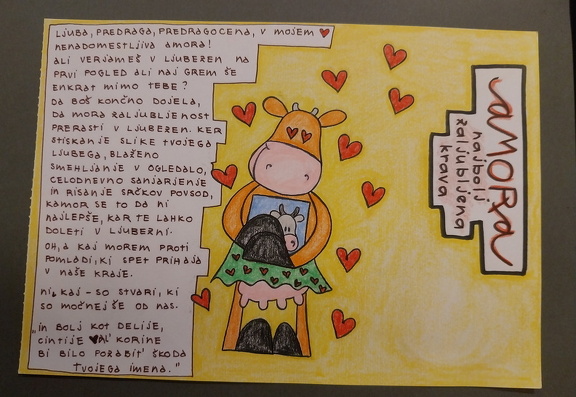 LJUBA, PREDRAGA, PREDRAGOCENA, V MOJEM ♥
NENADOMESTLJIVA AMORA!
ALI VERJAMEŠ V LJUBEZEN NA
PRVI POGLED ALI NAJ GREM ŠE
ENKRAT MIMO TEBE?
DA BOŠ KONČNO DOJELA,
DA MORA ZALJUBLJENOST
PRERASTI V LJUBEZEN. KER
STISKANJE SLIKE TVOJEGA
LJUBEGA, BLAŽENO
SMEHLJANJE V OGLEDALO,
CELODNEVNO SANJARJENJE
IN RISANJE SRČKOV POVSOD,
KAMOR SE TO DA NI
NAJLEPŠE, KAR TE LAHKO
DOLETI V LJUBEZNI.
OH, A KAJ MOREM PROTI
POMLADI, KI SPET PRIHAJA
V NAŠE KRAJE.
NIČ KAJ - SO STVARI, KI
SO MOČNEJŠE OD NAS.
"IN BOLJ KOT DELIJE,
CINTIJE AL' KORINE
BI BILO PORABIT' ŠKODA
TVOJEGA IMENA."
AMORA
najbolj
zaljubljena
krava